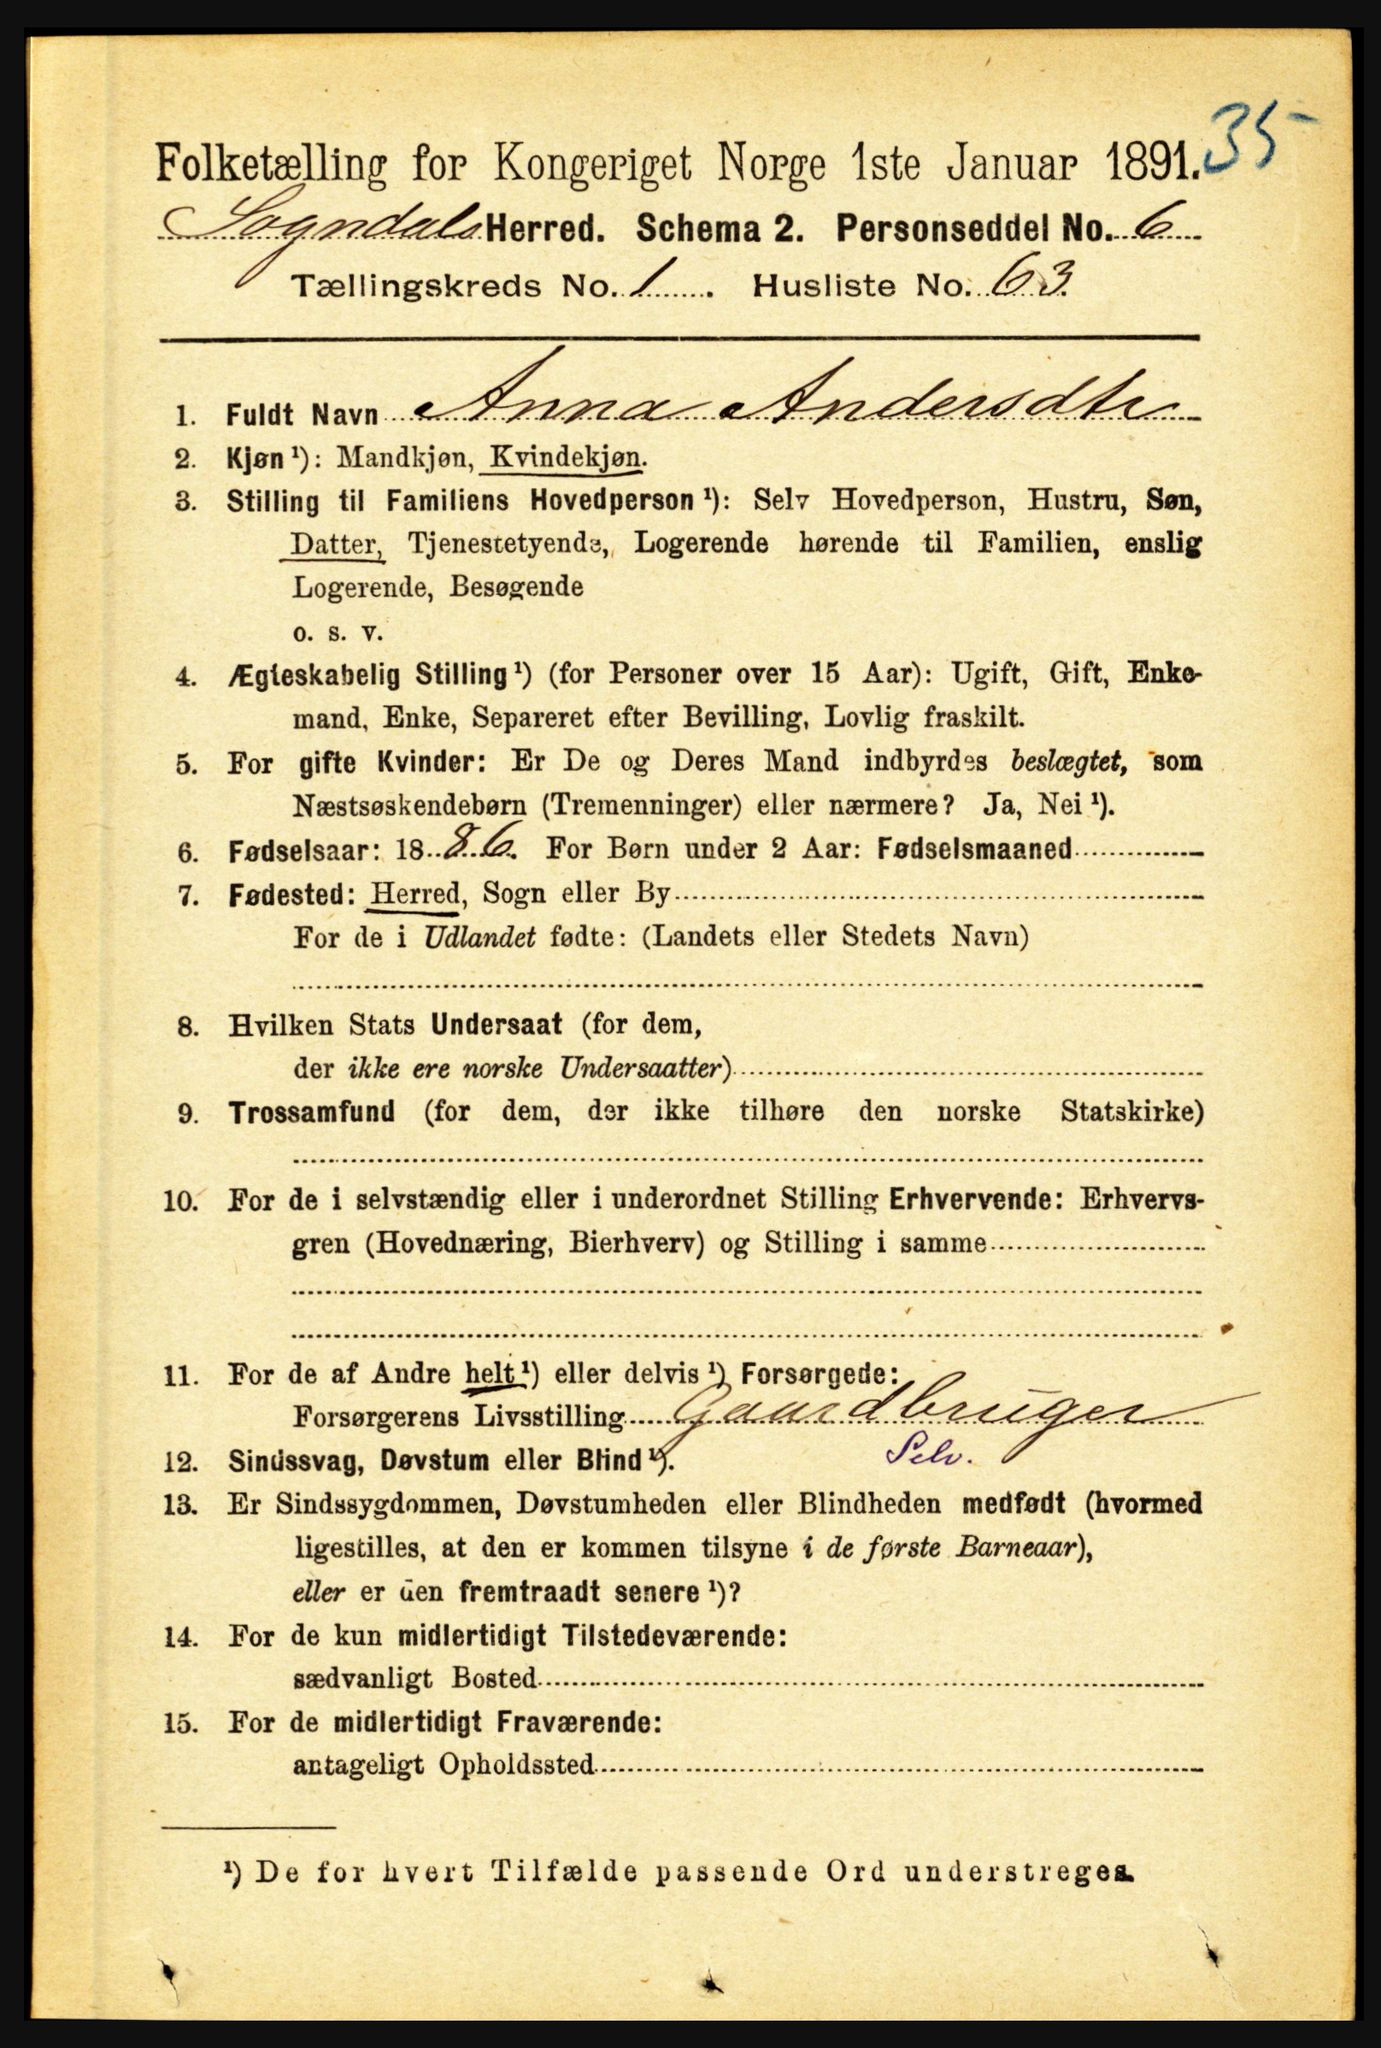 35
Folketælling for Kongeriget Norge 1ste Januar 1891.
Sogndals Herred. Schema 2. Personseddel No. 6
Tællingskreds No. 1. Husliste No. 63.
1. Fuldt Navn Anna Andersdtr
2. Kjøn ¹): Mandkjøn, Kvindekjøn.
3. Stilling til Familiens Hovedperson ¹): Selv Hovedperson, Hustru, Søn,
Datter, Tjenestetyende, Logerende hørende til Familien, enslig
Logerende, Besøgende
o. s. v.
4. Ægteskabelig Stilling ¹) (for Personer over 15 Aar): Ugift, Gift, Enke-
mand, Enke, Separeret efter Bevilling, Lovlig fraskilt.
5. For gifte Kvinder: Er De og Deres Mand indbyrdes beslægtet, som
Næstsøskendebørn (Tremenninger) eller nærmere? Ja, Nei ¹).
6. Fødselsaar: 1886. For Børn under 2 Aar: Fødselsmaaned
7. Fødested: Herred, Sogn eller By
For de i Udlandet fødte: (Landets eller Stedets Navn)
8. Hvilken Stats Undersaat (for dem,
der ikke ere norske Undersaatter)
9. Trossamfund (for dem, der ikke tilhøre den norske Statskirke)
10. For de i selvstændig eller i underordnet Stilling Erhvervende: Erhvervs-
gren (Hovednæring, Bierhverv) og Stilling i samme
11. For de af Andre helt ¹) eller delvis ¹) Forsørgede:
Forsørgerens Livsstilling Gaardbruger
12. Sindssvag, Døvstum eller Blind ¹). Selv.
13. Er Sindssygdommen, Døvstumheden eller Blindheden medfødt (hvormed
ligestilles, at den er kommen tilsyne i de første Barneaar),
eller er den fremtraadt senere ¹)?
14. For de kun midlertidigt Tilstedeværende:
sædvanligt Bosted
15. For de midlertidigt Fraværende:
antageligt Opholdssted
¹) De for hvert Tilfælde passende Ord understreges.